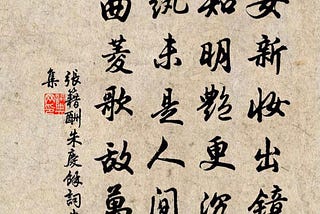 女新妝出鏡
知明艷更沉
紈未是人間
曲菱歌敵萬
張籍酬朱慶餘詞
集